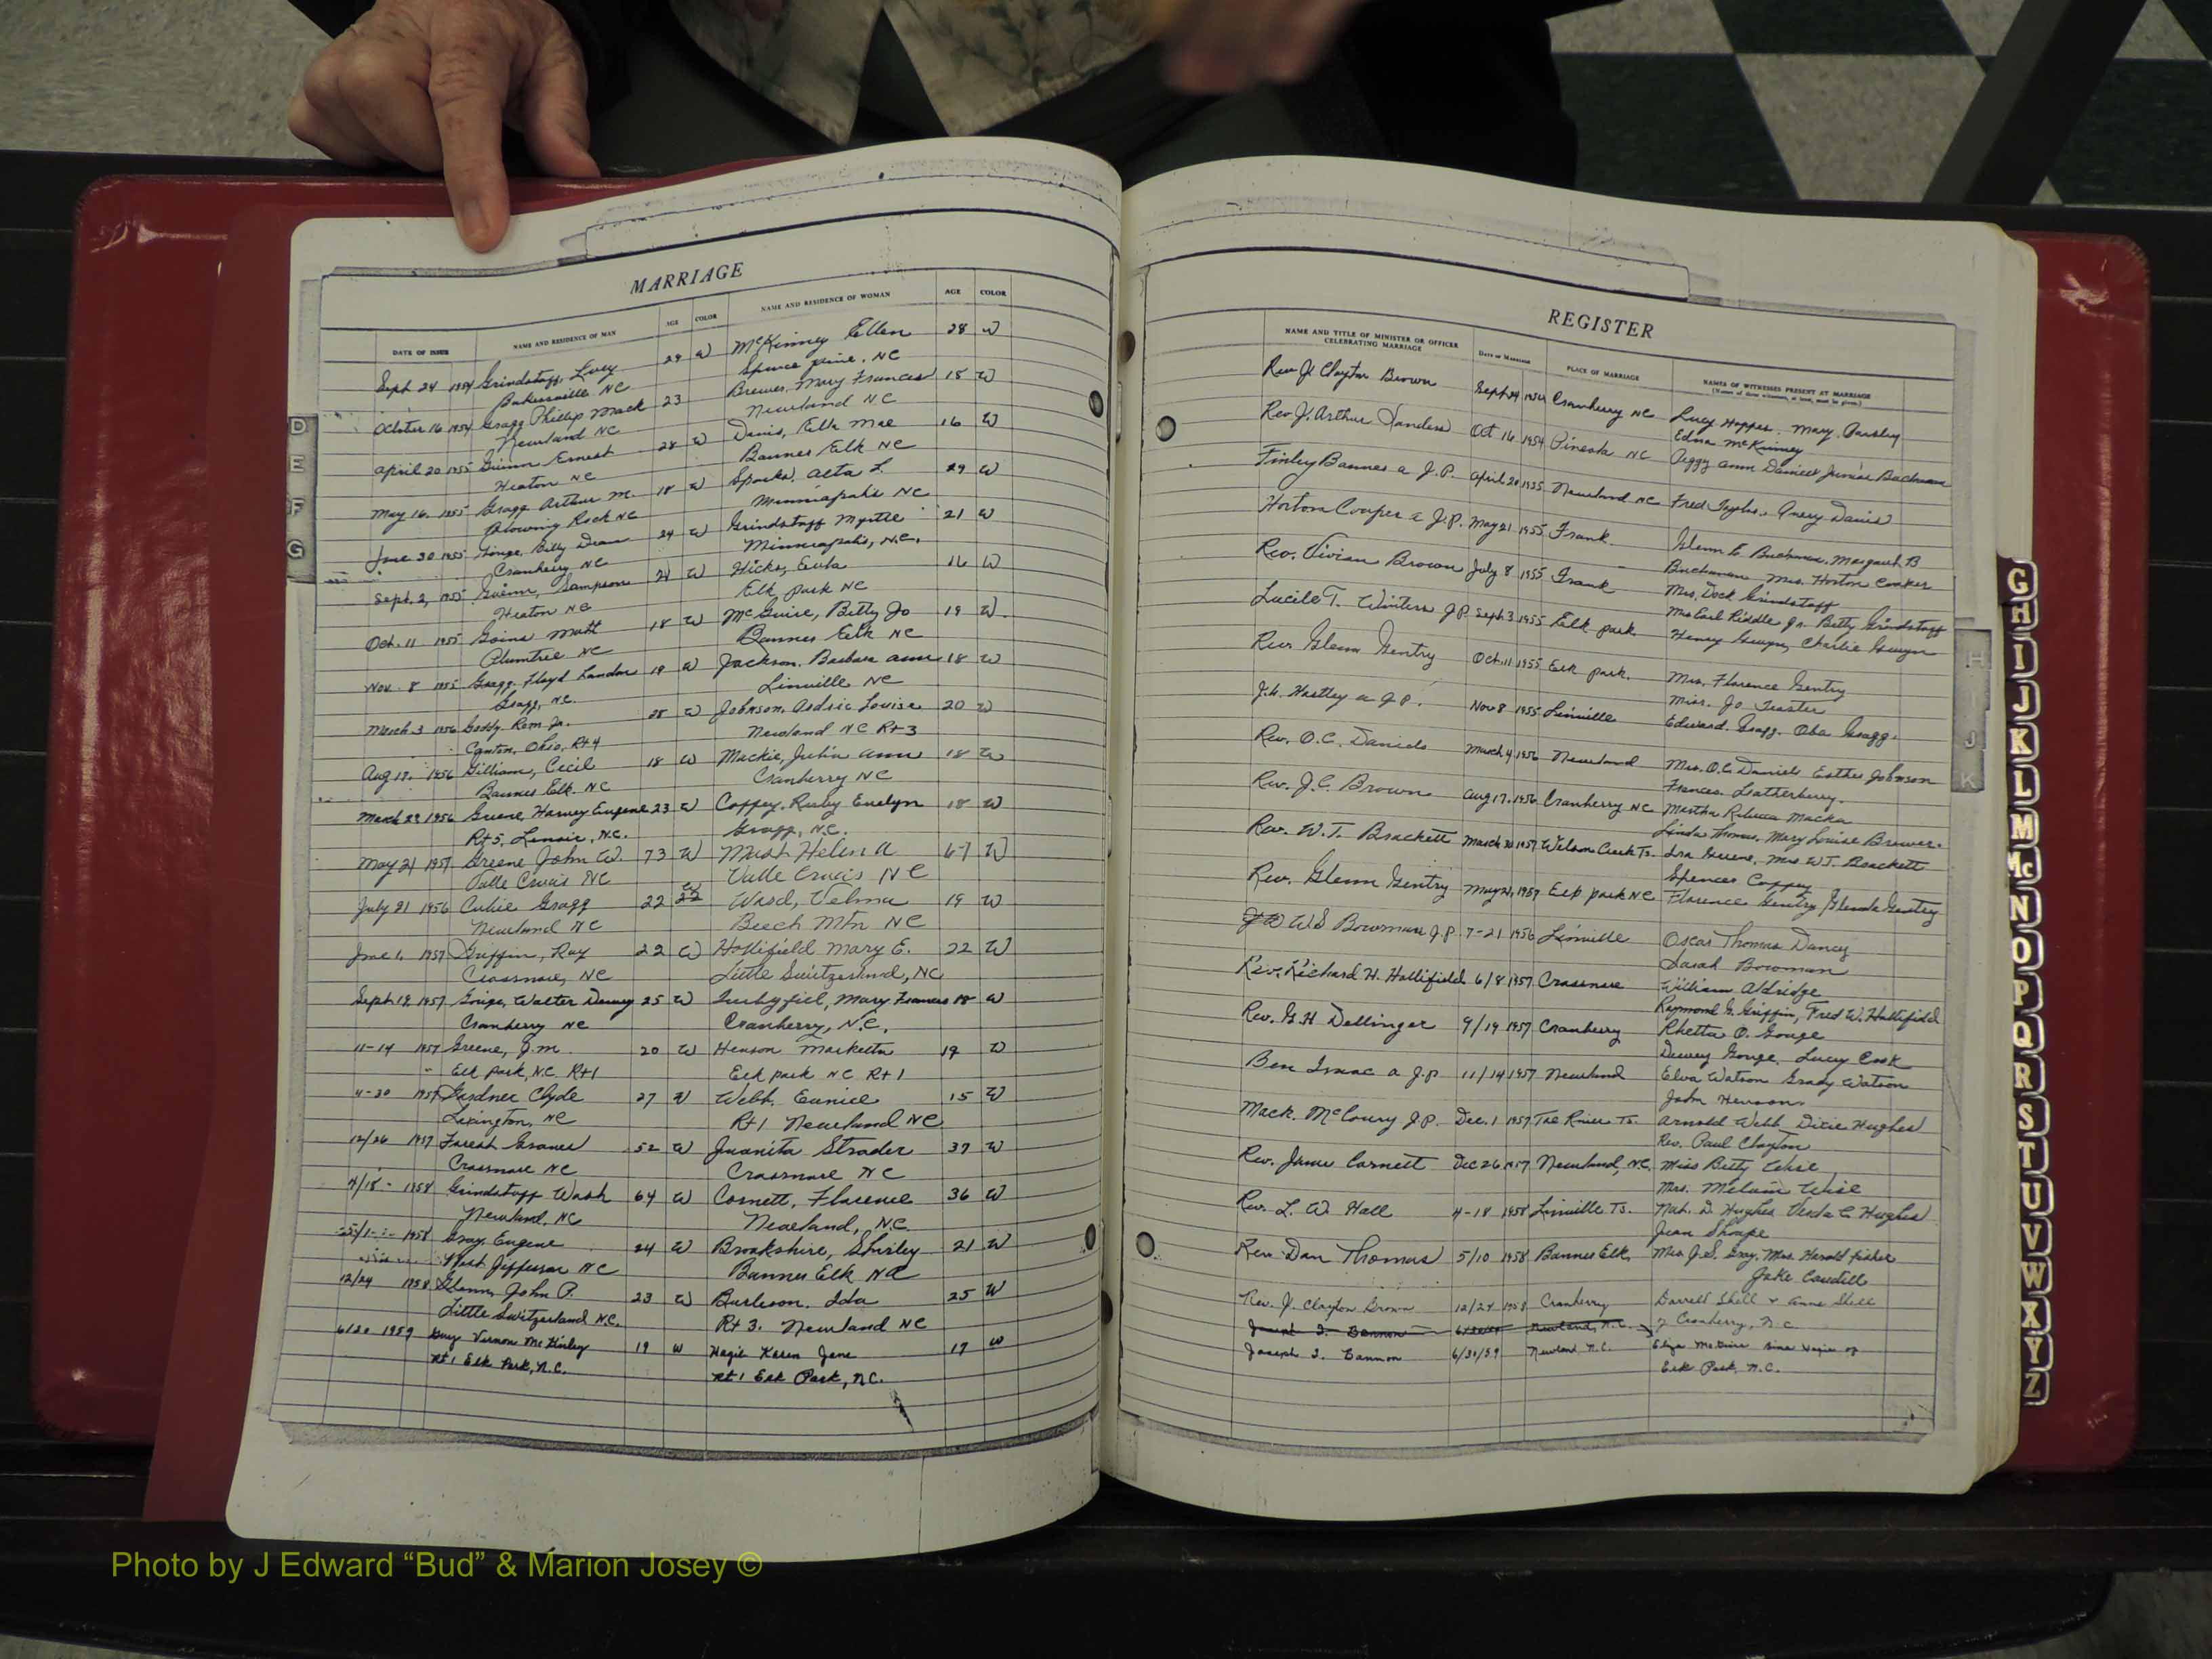 MARRIAGE
DATE OF ISSUE NAME AND RESIDENCE OF MAN AGE COLOR NAME AND RESIDENCE OF WOMAN AGE COLOR
Sept 24 1954 Grindstaff, Lucy 29 W McKinney Ellen 28 W
Bakersville NC Spruce pine, NC
October 16 1954 Gragg Phillip Mack 23 Brewer, Mary Frances 18 W
Newland NC Newland NC
April 20 1955 Guinn Ernest 28 W Davis, Ella Mae 16 W
Heaton NC Banner Elk NC
May 16, 1955 Gragg Arthur M. 18 W Sparks, Aeta F. 29 W
Blowing Rock NC Minneapolis NC
June 30 1955 Gouge, Billy Dean 24 W Grindstaff Myrtle 21 W
Cranberry NC Minneapolis, N.C.
Sept. 2, 1955 Guinn, Sampson 21 W Hicks, Eula 16 W
Heaton NC Elk park NC
Oct. 11 1955 Goins Matt 18 W McGuire, Betty Jo 19 W
Plumtree NC Banner Elk NC
Nov. 8 1955 Gragg, Floyd Landon 19 W Jackson, Barbara Ann 18 W
Gragg, NC. Linville NC
March 3 1956 Goddy Rom Jr. 28 W Johnson, Louise 20 W
Canton, Ohio, Rt 4 Newland NC Rt 3
Aug 17, 1956 Gilliam, Cecil 18 W Mackie, Julia Ann 18 W
Banner Elk NC Cranberry NC
March 29 1956 Greene, Harvey Eugene 23 W Coffey, Ruby Evelyn 18 W
Rt 5, Lenoir, N.C. Gragg, N.C.
May 21 1957 Greene John W. 73 W Mast Helen A 67 W
Valle Crucis NC Valle Crucis NC
July 21 1956 Cubie Gragg 22 W Ward, Velma 19 W
Newland NC Beech Mtn NC
June 1, 1957 Griffin, Ray 22 W Hollifield Mary E. 22 W
Crossnore, NC Little Switzerland, NC
Sept 19, 1957 Gouge, Walter Dewey 25 W Mary Frances 18 W
Cranberry NC Cranberry, N.C.
11-14 1957 Greene, J.M. 20 W Henson Marketta 19 W
" Elk Park, N.C. Rt 1 Elk park NC Rt 1
11-30 1957 Gardner Clyde 27 W Webb, Eunice 15 W
Lexington, NC Rt 1 Newland NC
12/26 1957 Forest Graves 52 W Juanita Strader 37 W
Crossnore NC Crossnore NC
4/18 - 1958 Grindstaff Wash 64 W Cornett, Florence 36 W
Newland, NC Newland, N.C.
1958 Gray, Eugene 24 W Brookshire, Shirley 21 W
West Jefferson NC Banner Elk NC
12/24 1958 Glenn, John P. 23 W Burleson, Ida 25 W
Little Switzerland N.C. Rt 3. Newland NC
6/20 1959 Guy Vernon McKinley 19 W Hagie Karen Jane 17 W
Rt 1 Elk Park, N.C. Rt 1 Elk Park, N.C.
D
E
F
G
REGISTER
NAME AND TITLE OF MINISTER OR OFFICER CELEBRATING MARRIAGE Date of Marriage PLACE OF MARRIAGE NAMES OF WITNESSES PRESENT AT MARRIAGE
(Names of three witnesses, at least, must be given.)
Rev J. Clayton Brown Sept 24 1954 Cranberry NC Lucy Hoppes, Mary Parsley
Edna McKinney
Rev J. Arthur Sanders Oct 16 1954 Pineola NC Peggy Ann Daniels Junior Buchanan
Finley Banner a J.P. April 20 1955 Newland NC Fred Taylor, Avery Davis
Horton Cooper a J.P. May 21 1955 Frank Glenn E. Buchanan, Margaret B
Buchanan Mrs. Horton Cooper
Rev. Vivian Brown July 8 1955 Frank Mrs. Dock Grindstaff
Mrs Earl Riddle Jr. Betty Grindstaff
Lucile T. Winters J.P. Sept 3 1955 Elk park Henry Gwyn, Charlie Gwyn
Rev. Glenn Gentry Oct. 11 1955 Elk park. Mrs. Florence Gentry
Miss. Jo Trester
J.H. Hartley a J.P. Nov 8 1955 Linville Edward Gragg. Oba Gragg.
Rev. O.C. Daniels March 4 1956 Newland Mrs. O.C. Daniels Esther Johnson
Frances Leatherberry.
Rev. J.C. Brown Aug 17, 1956 Cranberry NC Martha Rebecca Macka
Linda Thomas, Mary Louise Brewer.
Rev. W.T. Brackett March 30 1957 Wilson Creek Ts. Ira Greene, Mrs W.T. Brackett
Spencer Coffey
Rev. Glenn Gentry May 21, 1957 Elk park NC Florence Gentry, Glenda Gentry
W S Bowman J.P. 7-21 1956 Linville Oscar Thomas Dancy
Sarah Bowman
Rev. Richard H. Hollifield 6/8 1957 Crossnore William Aldridge
Raymond G. Griffin, Fred W. Hollifield
Rev. G.H Dellinger 9/19 1957 Cranberry Rhetta O. Gouge
Dewey Gouge, Lucy Cook
Ben Isaac a J.P. 11/14 1957 Newland Elva Watson Grady Watson
John Henson
Mack. McCoury J.P. Dec. 1 1957 Toe River Ts. Arnold Webb Dixie Hughes
Rev. Paul Clayton
Rev. James Cornett Dec 26 1957 Newland, N.C. Miss Betty Wise
Mrs. Melvin Wise
Rev. L. W. Hall 4-18 1958 Linville Ts. Nat. D. Hughes Verda C Hughes
Jean Shoupe
Rev. Dan Thomas 5/10 1958 Banner Elk, Mrs J.S. Gray, Mrs. Harold Fisher
Jake Caudill
Rev. J. Clayton Brown 12/24 1958 Cranberry Darrell Shell & Anne Shell
Joseph I. Bannon Newland, N.C. of Cranberry, N.C.
Joseph I. Bannon 6/30/59 Newland N.C.
Elk Park, N.C.
H
J
K
G
H
I
J
K
L
M
Mc
N
O
P
Q
R
S
T
U
V
W
X
Y
Z
Photo by J Edward “Bud” & Marion Josey ©